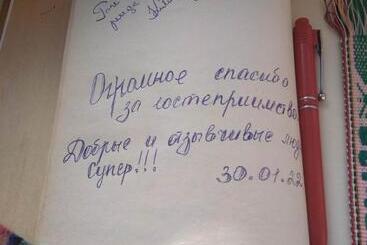 Огромное спасибо
за гостеприимство
Добрые и отзывчивые люди
Супер!!!
30.01.22